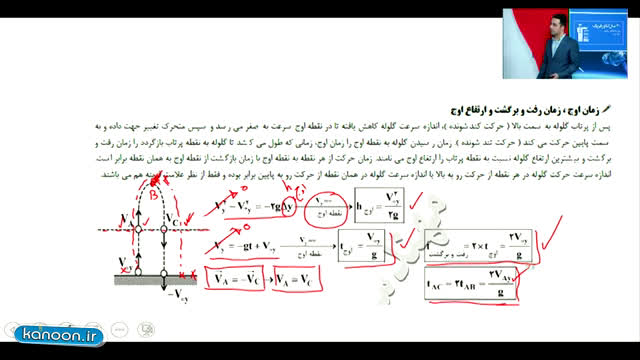 زمان اوج ، زمان رفت و برگشت و ارتفاع اوج
پس از پرتاب گلوله به سمت بالا ( حرکت کند شونده )، اندازه سرعت گلوله کاهش یافته تا در نقطه اوج سرعت به صفر می رسد و سپس متحرک تغییر جهت داده و به
سمت پایین حرکت می کند ( حرکت تند شونده ). زمان رسیدن گلوله به نقطه اوج را زمان اوج، زمانی که طول می کشد تا گلوله به نقطه پرتاب بازگردد را زمان رفت و
برگشت و بیشترین ارتفاع گلوله نسبت به نقطه پرتاب را ارتفاع اوج می نامند. زمان حرکت از هر نقطه به نقطه اوج با زمان بازگشت از نقطه اوج به همان نقطه برابر است.
اندازه سرعت حرکت گلوله در هر نقطه از حرکت رو به بالا با اندازه سرعت گلوله در همان نقطه از حرکت رو به پایین برابر بوده و فقط از نظر علامت قرینه هم می باشند.
B
V_y² − V_oy² = −2gΔy نقطه اوج h اوج = V_oy² / 2g
V_A V_C
V_y = −gt + V_oy نقطه اوج t اوج = V_oy / g t رفت و برگشت = 2 × t اوج = 2V_oy / g
V_oy
V_A = −V_C → V_A = V_C t_AC = 2t_AB = 2V_Ay / g
−V_oy
kanoon.ir